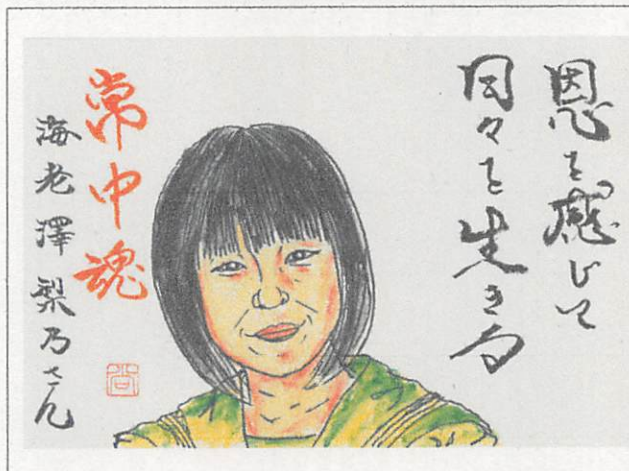 恩を感じて
日々を生きる
常中魂
海老澤梨乃さん
尚